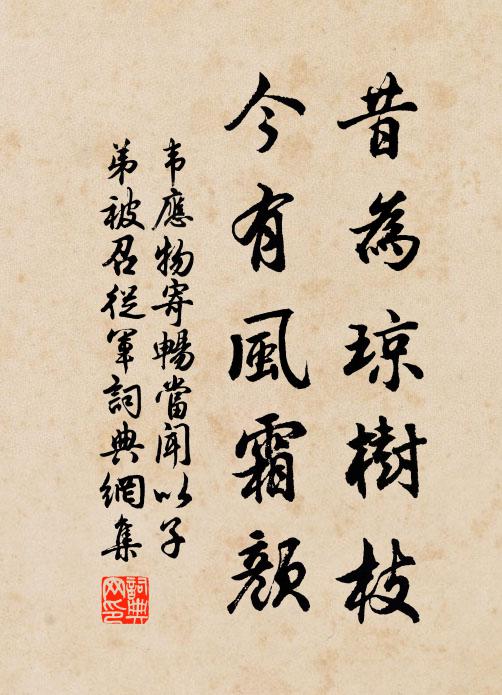 昔為琼樹枝
今有風霜顏
韦應物寄暢當聞以子
弟被召從軍詞典網集
詞典网印